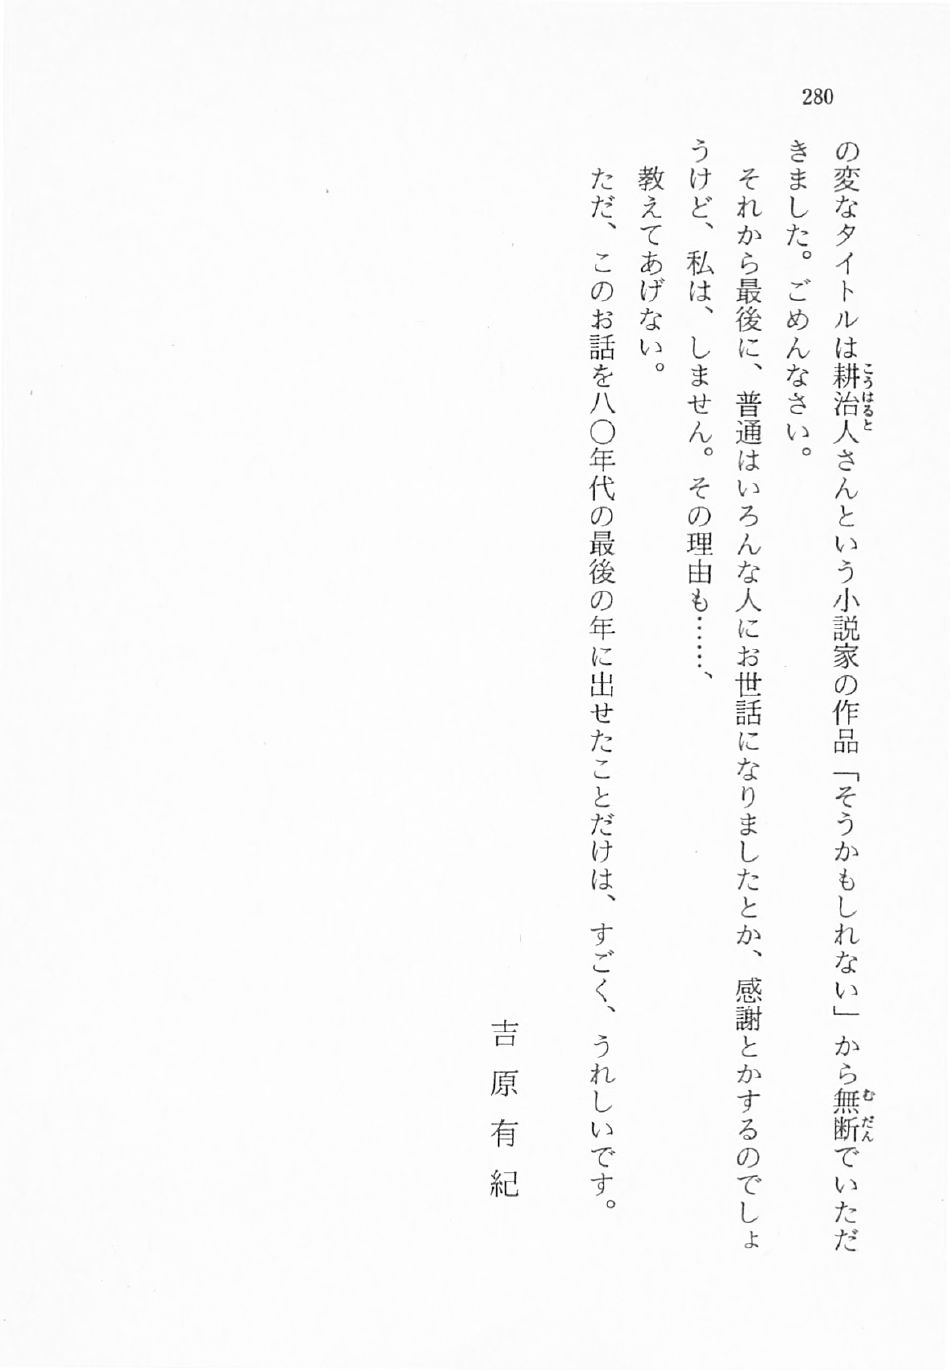 280
の変なタイトルは耕治人さんという小説家の作品「そうかもしれない」から無断でいただ
きました。ごめんなさい。
それから最後に、普通はいろんな人にお世話になりましたとか、感謝とかするのでしょ
うけど、私は、しません。その理由も……、
教えてあげない。
ただ、このお話を八〇年代の最後の年に出せたことだけは、すごく、うれしいです。
吉原有紀
こうはると
むだん